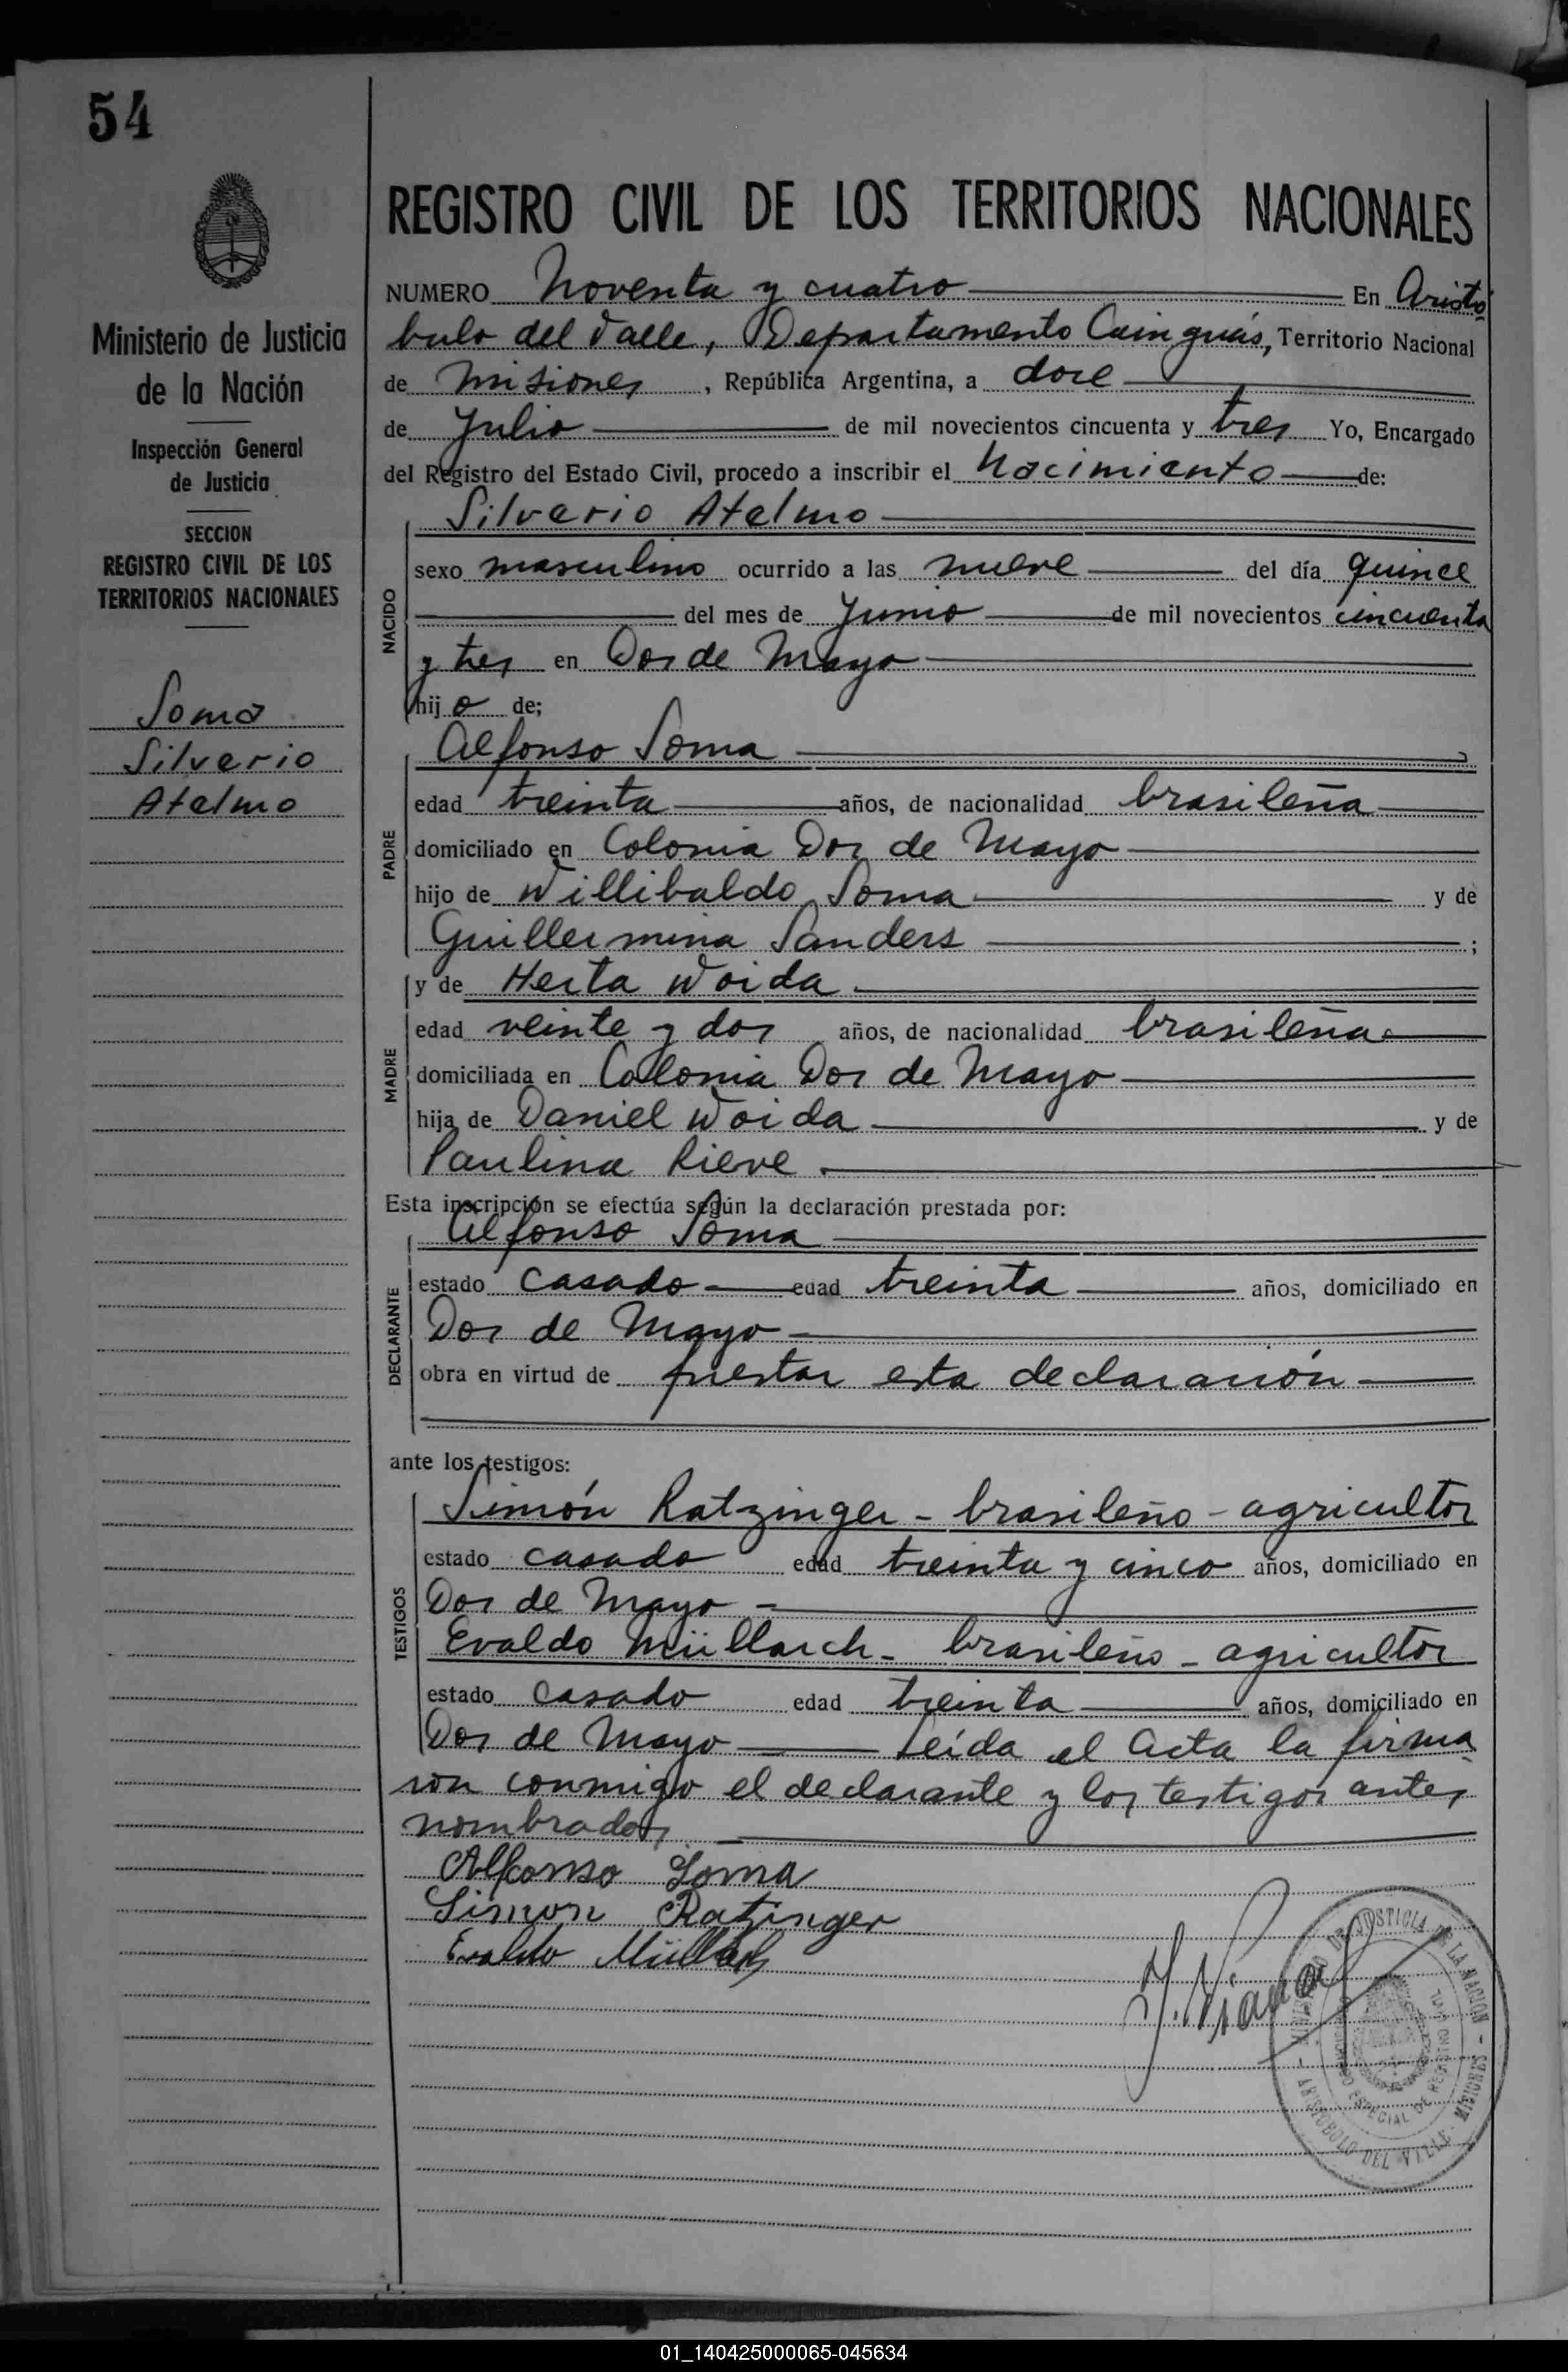 54
Ministerio de Justicia
de la Nación
Inspección General
de Justicia
SECCION
REGISTRO CIVIL DE LOS
TERRITORIOS NACIONALES
Soma
Silverio
Atelmo
REGISTRO CIVIL DE LOS TERRITORIOS NACIONALES
NUMERO Noventa y cuatro En Aristó
bulo del Valle, Departamento Cainguás, Territorio Nacional
de Misiones, República Argentina, a doce
de Julio de mil novecientos cincuenta y tres Yo, Encargado
del Registro del Estado Civil, procedo a inscribir el Nacimiento de:
Silverio Atelmo
NACIDO
sexo masculino ocurrido a las nueve del día quince
del mes de Junio de mil novecientos cincuenta
y tres en Dos de Mayo
hijo de;
PADRE
Alfonso Soma
edad treinta años, de nacionalidad brasileña
domiciliado en Colonia Dos de Mayo
hijo de Willibaldo Soma y de
Guillermina Sanders ;
MADRE
y de Herta Woida
edad veinte y dos años, de nacionalidad brasileña
domiciliada en Colonia Dos de Mayo
hija de Daniel Woida y de
Paulina Rieve.
Esta inscripción se efectúa según la declaración prestada por:
DECLARANTE
Alfonso Soma
estado casado edad treinta años, domiciliado en
Dos de Mayo
obra en virtud de prestar esta declaración
ante los testigos:
TESTIGOS
Simón Ratzinger - brasileño - agricultor
estado casado edad treinta y cinco años, domiciliado en
Dos de Mayo
Evaldo Müllarch - brasileño - agricultor
estado casado edad treinta años, domiciliado en
Dos de Mayo Leída el Acta la firma
ron conmigo el declarante y los testigos antes
nombrados.
Alfonso Soma
Simon Ratzinger
Evaldo
MISIONES
ARISTOBULO DEL VALLE
01_140425000065-045634